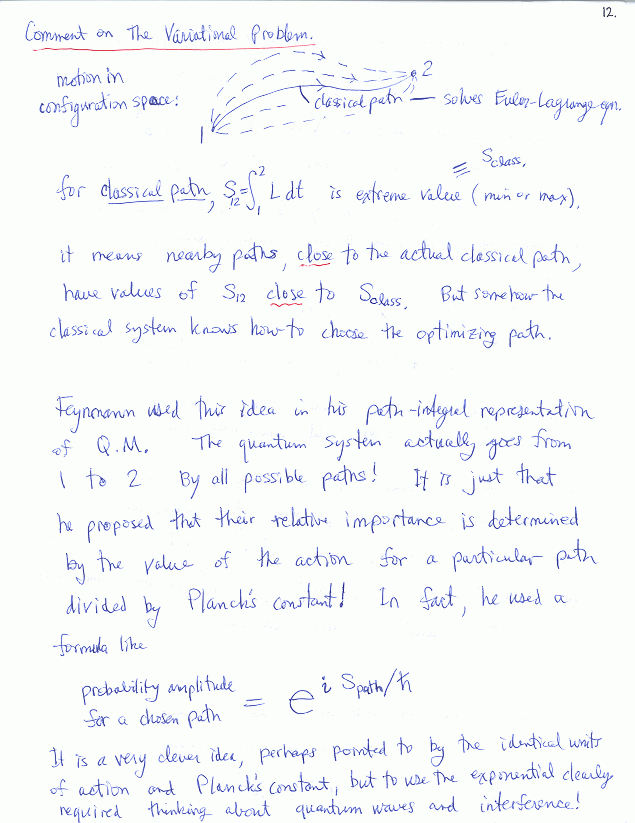 12.
Comment on The Variational Problem.
motion in
configuration space:
1
2
classical path — solves Euler-Lagrange eqn.
for classical path, S₁₂=∫₁² L dt is extreme value (min or max),
≡ Sclass.
it means nearby paths, close to the actual classical path,
have values of S₁₂ close to Sclass. But somehow the
classical system knows how to choose the optimizing path.
Feynmann used this idea in his path-integral representation
of Q.M. The quantum system actually goes from
1 to 2 By all possible paths! It is just that
he proposed that their relative importance is determined
by the value of the action for a particular path
divided by Planck's constant! In fact, he used a
formula like
probability amplitude
for a chosen path = e^{i Spath/ℏ}
It is a very clever idea, perhaps pointed to by the identical units
of action and Planck's constant, but to use the exponential clearly
required thinking about quantum waves and interference!